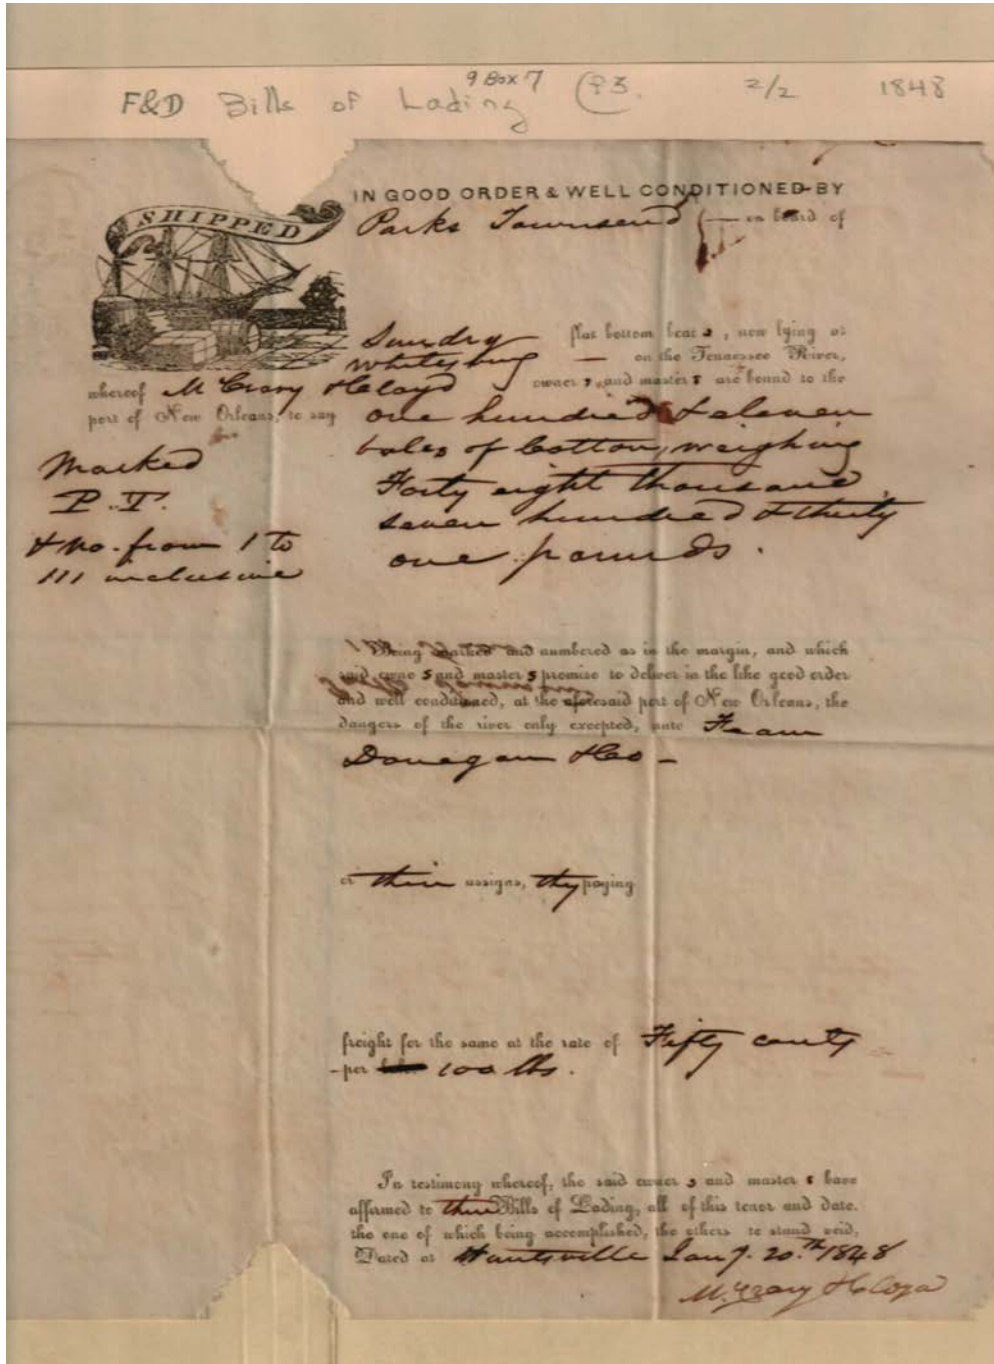 9 Box 7
F&D Bills of Lading P3. 2/2 1848
SHIPPED
IN GOOD ORDER & WELL CONDITIONED BY
Parks Townsend on board of
Sundry flat bottom boats, now lying at
Whitesburg on the Tennessee River,
whereof McCrary & Cloyd owners, and masters are bound to the
port of New Orleans, to say one hundred & eleven
bales of Cotton, weighing
Forty eight thousand
seven hundred & thirty
one pounds.
Marked
P.T.
& No. from 1 to
111 inclusive
Being marked and numbered as in the margin, and which
said owners and masters promise to deliver in the like good order
and well conditioned, at the aforesaid port of New Orleans, the
dangers of the river only excepted, unto Fearn
Donegan & Co
or their assigns, they paying
freight for the same at the rate of Fifty cents
per 100 lbs.
In testimony whereof, the said owners and masters have
affirmed to three Bills of Lading, all of this tenor and date.
the one of which being accomplished, the others to stand void,
Dated at Huntsville Jany. 20.th 1848
McCrary & Cloyd